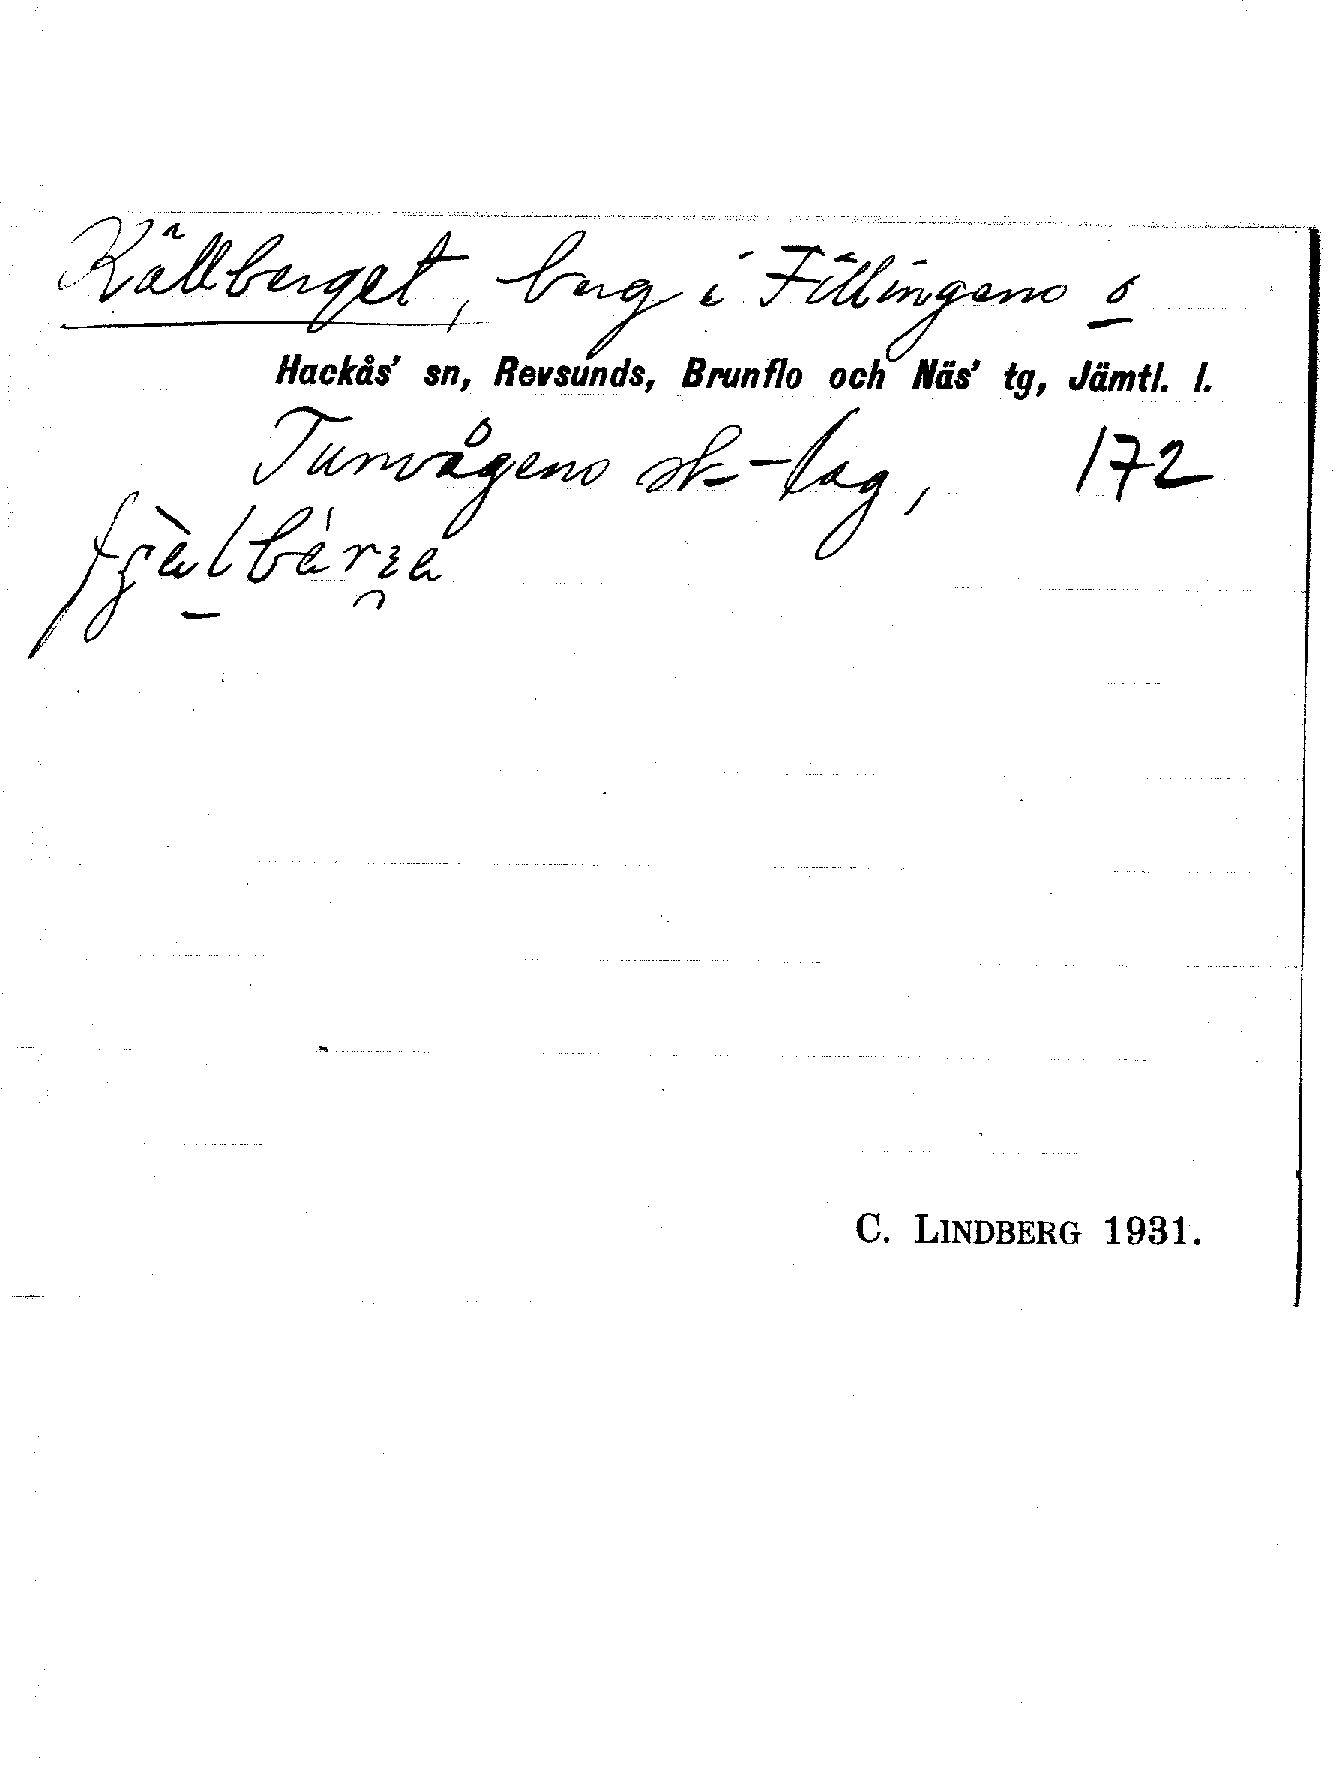 Källberget, berg i Fillingens o
Hackås' sn, Revsunds, Brunflo och Näs' tg, Jämtl. l.
Tunvågens sk-lag, 172
C. LINDBERG 1931.